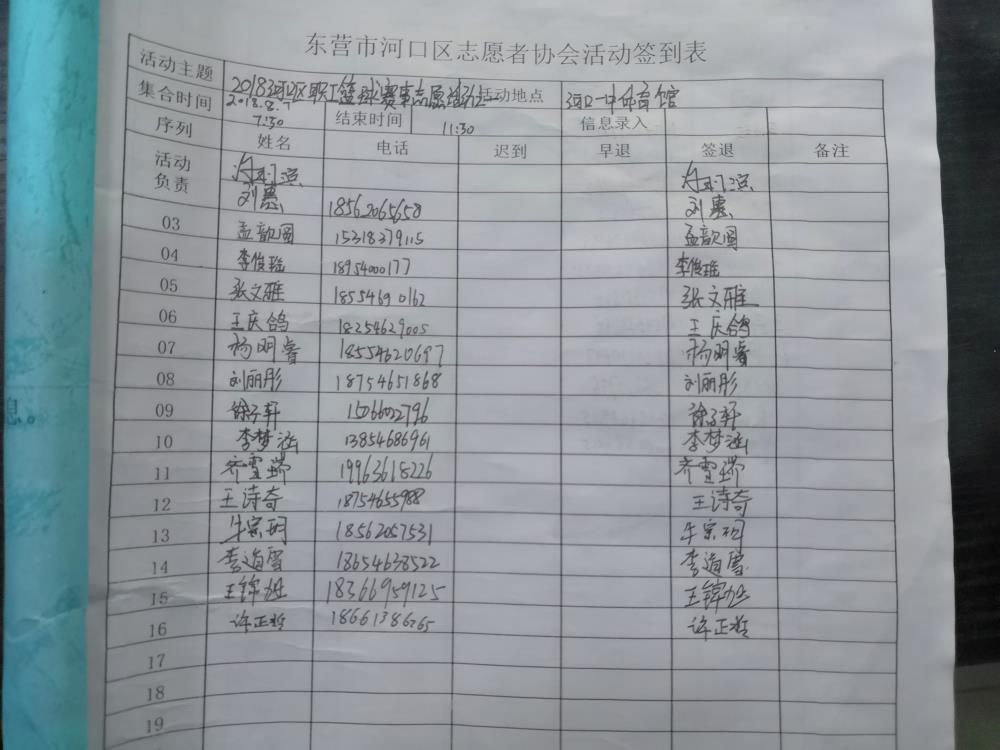 东营市河口区志愿者协会活动签到表
活动主题 2018河口区职工篮球赛事志愿活动 活动地点 河口一中体育馆
集合时间 2018.8.7 7:30 结束时间 11:30 信息录入
序列 姓名 电话 迟到 早退 签退 备注
活动负责
刘惠 18562065658 刘惠
03 孟歆圆 15318379115 孟歆圆
04 李俊瑶 1895400177 李俊瑶
05 张文雅 18554690162 张文雅
06 王庆鸽 18254629005 王庆鸽
07 杨明睿 18554620697 杨明睿
08 刘丽彤 18754651868 刘丽彤
09 徐子轩 1506602796 徐子轩
10 李梦涵 13854686961 李梦涵
11 齐雪瑞 19963618226 齐雪瑞
12 王诗奇 18754655988 王诗奇
13 牛宗玥 18562057531 牛宗玥
14 李道雪 18654638522 李道雪
15 王锦旭 18366959125 王锦旭
16 许正哲 18661386265 许正哲
17
18
19
息。